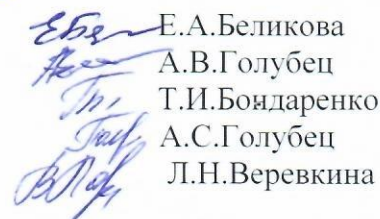 Е.А.Беликова
А.В.Голубец
Т.И.Бондаренко
А.С.Голубец
Л.Н.Веревкина